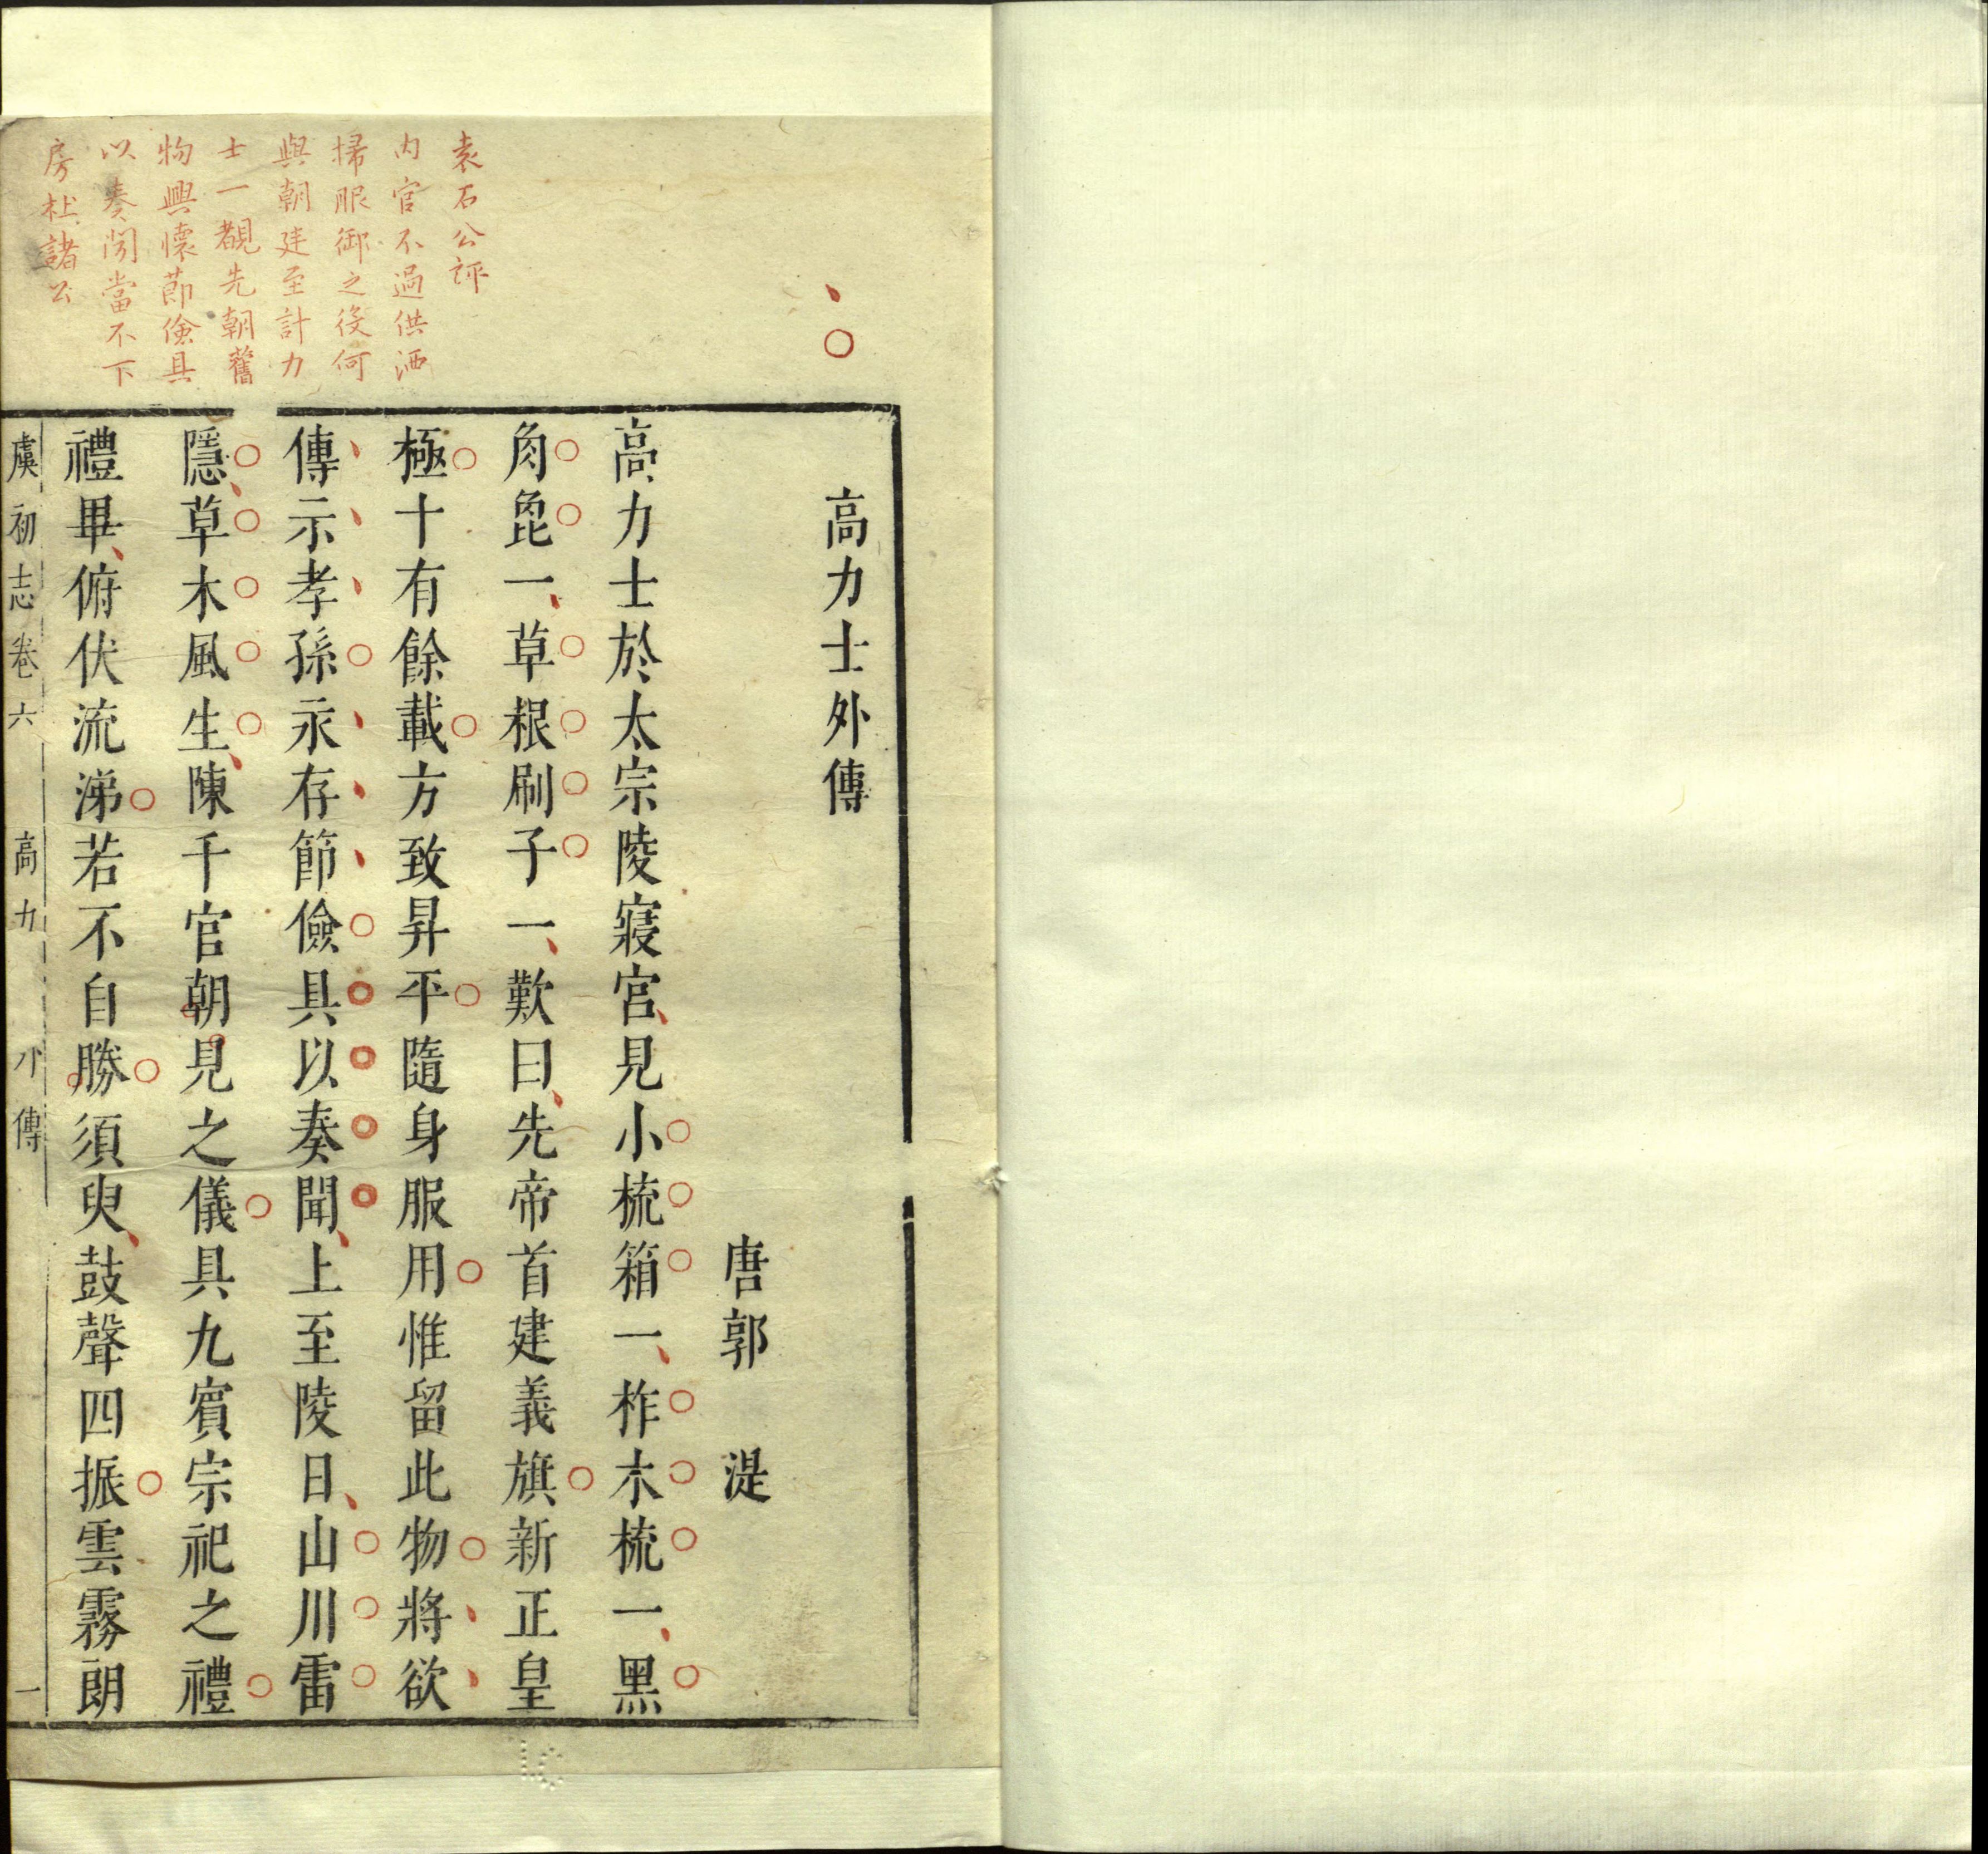 袁石公評
内官不過供洒
掃服御之役何
與朝廷至計力
士一覩先朝舊
物興懷節儉具
以奏聞當不下
房杜諸公
高力士外傳
唐郭湜
高力士於太宗陵寢宮見小梳箱一柞木梳一黑
角篦一草根刷子一歎曰先帝首建義旗新正皇
極十有餘載方致昇平隨身服用惟留此物將欲
傳示孝孫永存節儉具以奏聞上至陵日山川雷
隱草木風生陳千官朝見之儀具九賓宗祀之禮
禮畢俯伏流涕若不自勝須臾鼓聲四振雲霧朗
虞初志卷六 高力 外傳 一